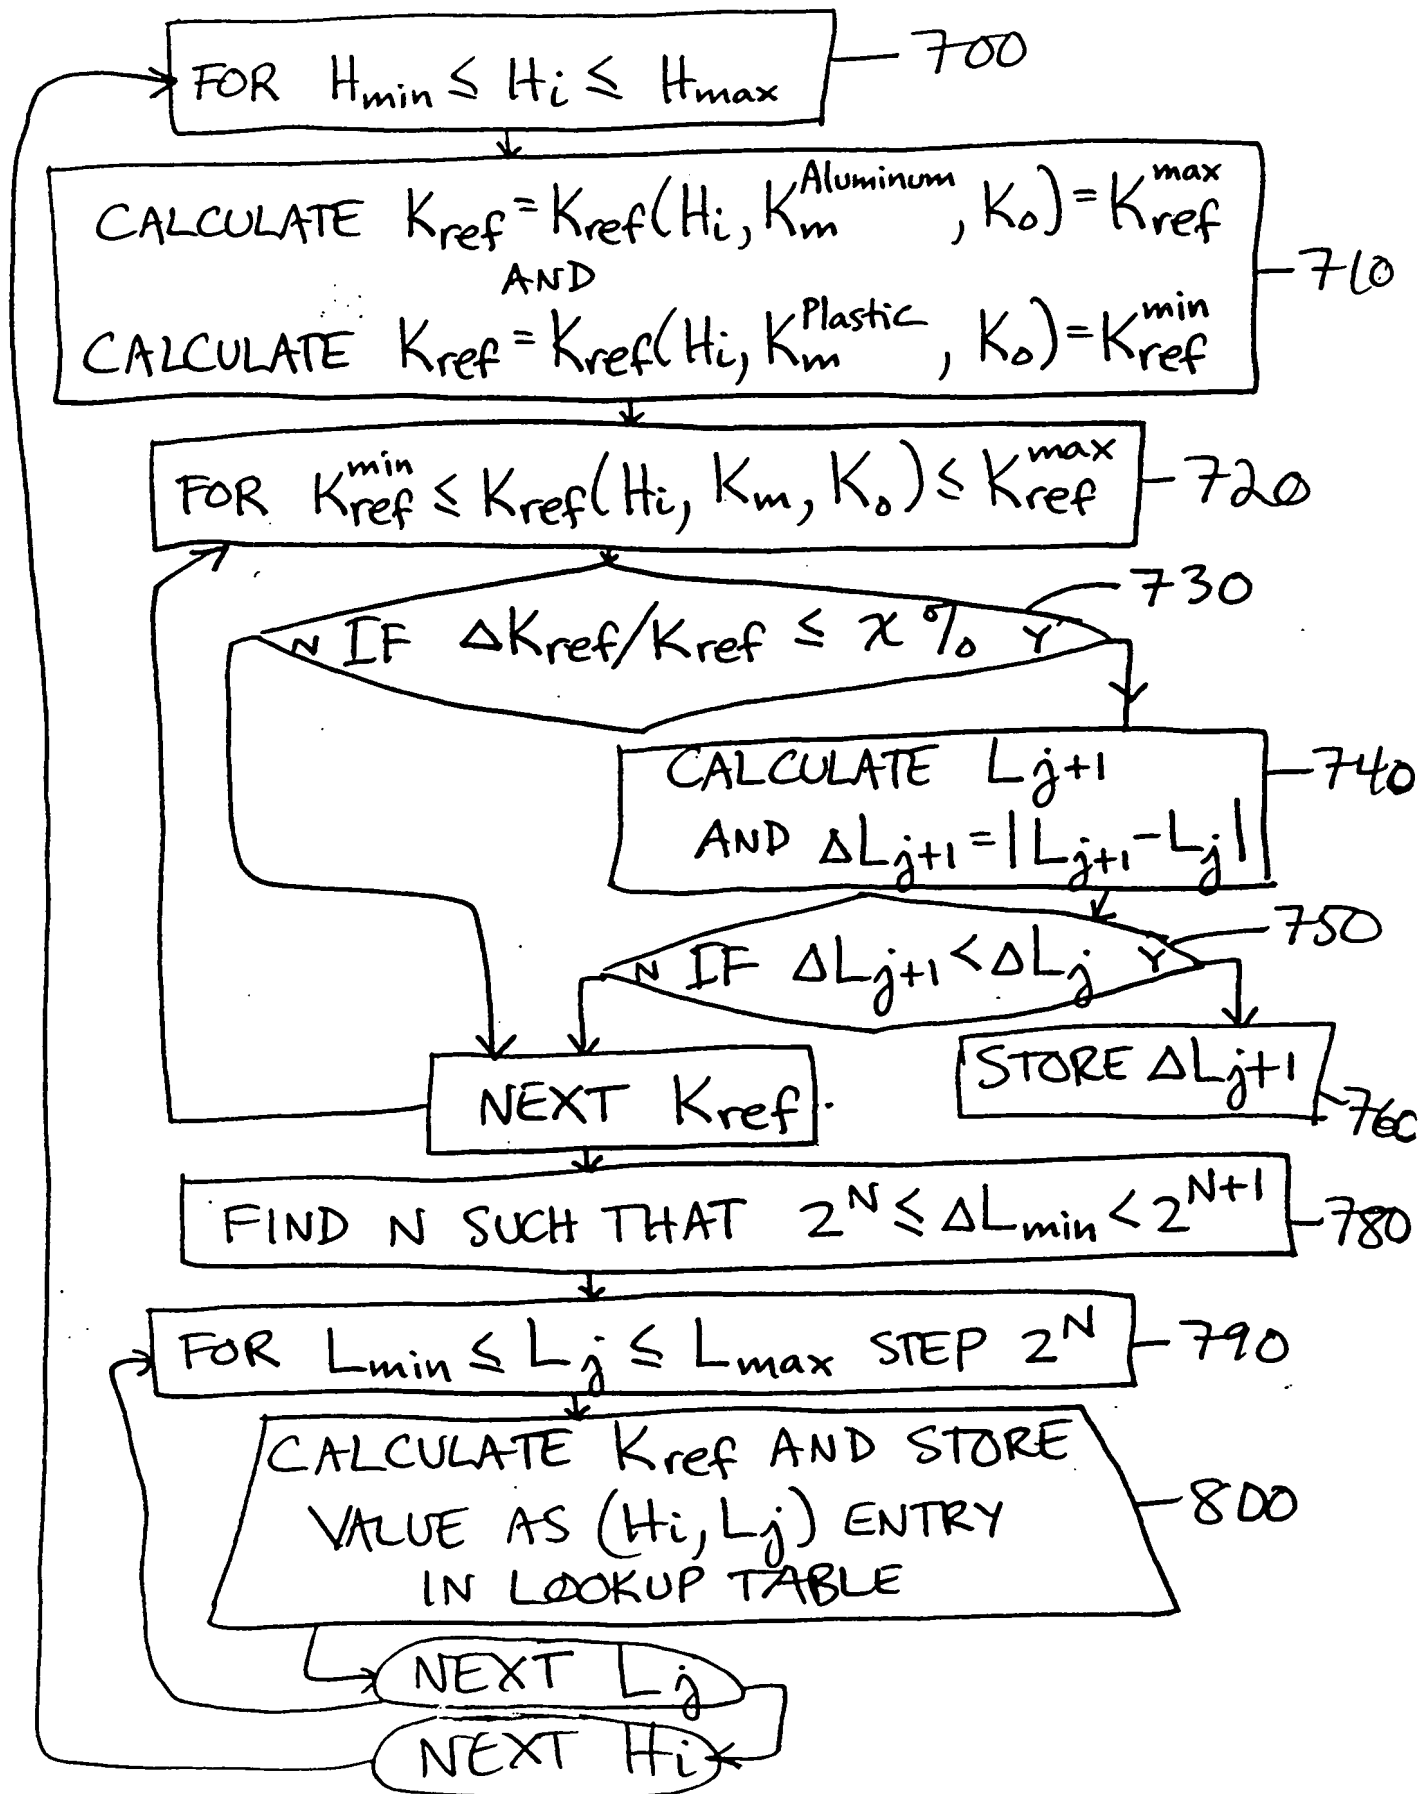 FOR Hmin ≤ Hi ≤ Hmax
700
CALCULATE Kref = Kref(Hi, Km^Aluminum, Ko) = Kref^max
AND
710
CALCULATE Kref = Kref(Hi, Km^Plastic, Ko) = Kref^min
FOR Kref^min ≤ Kref(Hi, Km, Ko) ≤ Kref^max
720
730
N IF ΔKref/Kref ≤ x % Y
CALCULATE Lj+1
740
AND ΔLj+1 = |Lj+1 - Lj|
750
N IF ΔLj+1 < ΔLj Y
STORE ΔLj+1
760
NEXT Kref
FIND N SUCH THAT 2^N ≤ ΔLmin < 2^N+1
780
FOR Lmin ≤ Lj ≤ Lmax STEP 2^N
790
CALCULATE Kref AND STORE
VALUE AS (Hi, Lj) ENTRY
800
IN LOOKUP TABLE
NEXT Lj
NEXT Hi